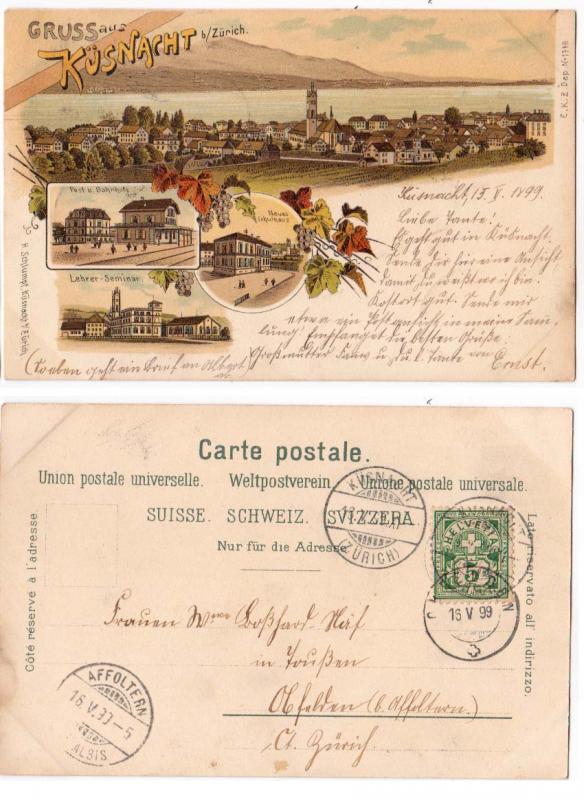 GRUSS aus
KÜSNACHT b/Zürich.
E.K.Z. Dep. No 1798
Post u. Bahnhof
Neues
Schulhaus
Lehrer-Seminar
H. Schlumpf, Küsnacht b/Zürich.
Küsnacht, 15. V. 1899.
Liebe Tante!
Es geht gut in Küsnacht.
Sende dir hier eine Ansicht
damit du weißt wo ich bin.
Kost gut. Sende mir
etwa ein Postansicht in meine Sam-
lung! Empfanget die besten Grüße:
Großmutter u. du l. Tante von
Ernst.
(Soeben geht ein Brief an Albert
Carte postale.
Union postale universelle. Weltpostverein. Unione postale universale.
SUISSE. SCHWEIZ. SVIZZERA.
Nur für die Adresse
Côté réservé à l'adresse
Lato riservato all' indirizzo.
KÜSNACHT
(ZÜRICH)
HELVETIA
5
16 V 99
Frauen Wwe Boßhard-Näf
in Toußen
Obfelden (b. Affoltern.)
Ct. Zürich
AFFOLTERN
16.V.99-5
ALBIS